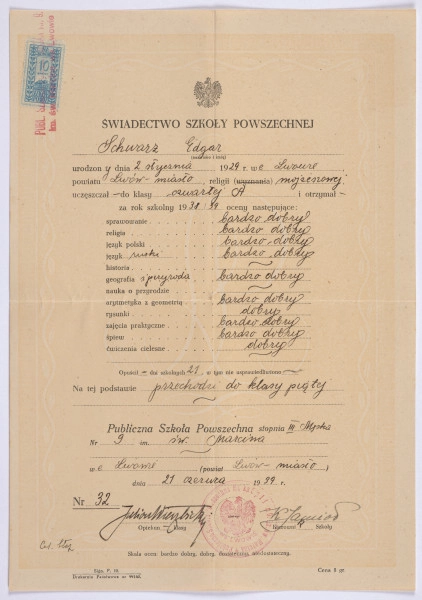 10
ŚWIADECTWO SZKOŁY POWSZECHNEJ
Schwarz Edgar
(nazwisko i imię)
urodzon y dnia 2 stycznia 1929 r. w e Lwowie
powiatu Lwów-miasto, religii (wyznania) mojżeszowej
uczęszczał — do klasy czwartej A i otrzymał —
za rok szkolny 1938/39 oceny następujące:
sprawowanie bardzo dobry
religia bardzo dobry
język polski bardzo dobry
język ruski bardzo dobry
historia
geografia z przyrodą bardzo dobry
nauka o przyrodzie
arytmetyka z geometrią bardzo dobry
rysunki dobry
zajęcia praktyczne bardzo dobry
śpiew bardzo dobry
ćwiczenia cielesne dobry
Opuścił — dni szkolnych 21, w tym nie usprawiedliwiono —
Na tej podstawie przechodzi do klasy piątej
Publiczna Szkoła Powszechna stopnia III Męska
Nr 9 im. św. Marcina
w e Lwowie (powiat Lwów-miasto)
dnia 21 czerwca 1939 r.
Nr 32
Opiekun klasy Kierownik Szkoły
Skala ocen: bardzo dobry, dobry, dostateczny, niedostateczny.
Cena 5 gr.